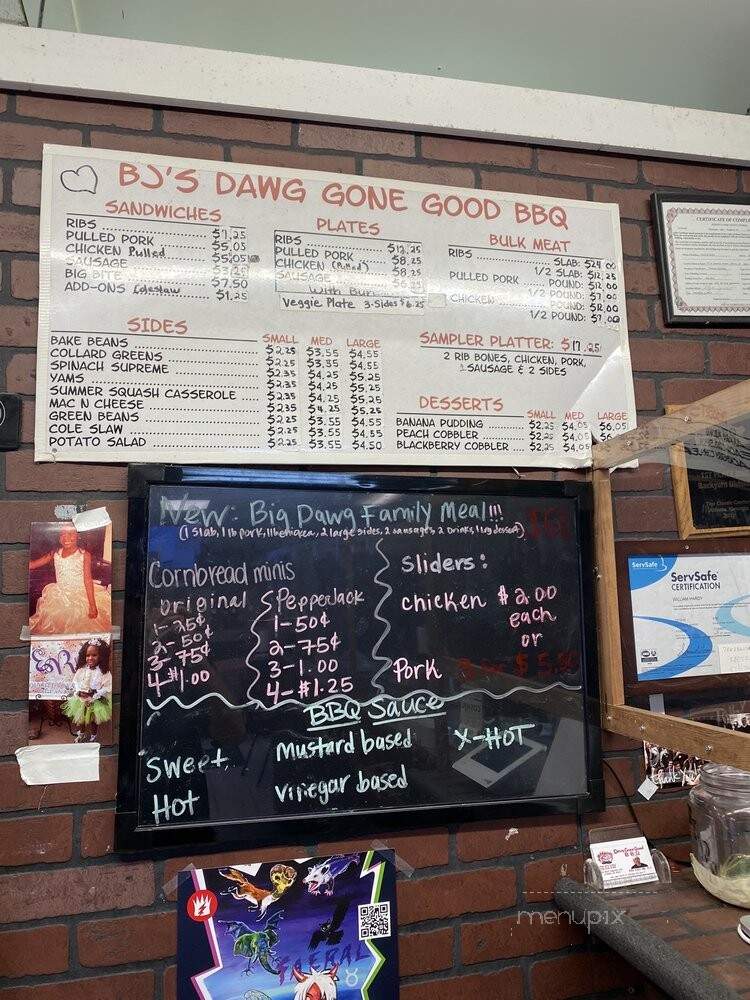 BJ'S DAWG GONE GOOD BBQ
SANDWICHES
RIBS $7.25
PULLED PORK $5.05
CHICKEN Pulled $5.05
SAUSAGE
BIG BITE $7.50
ADD-ONS Coleslaw $1.25
PLATES
RIBS $12.25
PULLED PORK $8.25
CHICKEN (Pulled) $8.25
SAUSAGE $6.25
With Bun
Veggie Plate 3-Sides $6.25
BULK MEAT
RIBS SLAB: $24.00
1/2 SLAB: $12.25
PULLED PORK POUND: $12.00
1/2 POUND: $7.00
CHICKEN POUND: $12.00
1/2 POUND: $7.00
SIDES
SMALL MED LARGE
BAKE BEANS $2.25 $3.55 $4.55
COLLARD GREENS $2.25 $3.55 $4.55
SPINACH SUPREME $2.35 $4.25 $5.25
YAMS $2.35 $4.25 $5.25
SUMMER SQUASH CASSEROLE $2.35 $4.25 $5.25
MAC N CHEESE $2.35 $4.25 $5.25
GREEN BEANS $2.25 $3.55 $4.55
COLE SLAW $2.25 $3.55 $4.55
POTATO SALAD $2.25 $3.55 $4.50
SAMPLER PLATTER: $17.25
2 RIB BONES, CHICKEN, PORK,
SAUSAGE & 2 SIDES
DESSERTS
SMALL MED LARGE
BANANA PUDDING $2.25 $4.05 $6.05
PEACH COBBLER $2.25 $4.05
BLACKBERRY COBBLER $2.25 $4.05
New: Big Dawg Family Meal!!!
(1 Slab, 1 lb pork, 2 large sides, 2 sausages, 2 Drinks, 1 lrg dessert)
Cornbread minis
original
1-25¢
2-50¢
3-75¢
4-$1.00
PepperJack
1-50¢
2-75¢
3-1.00
4-$1.25
Sliders:
chicken $2.00
each
or
Pork
BBQ Sauce
Sweet
Hot
Mustard based
Vinegar based
X-HOT
ServSafe
ServSafe
CERTIFICATION
WILLIAM HARDY
FAERAL
menupix